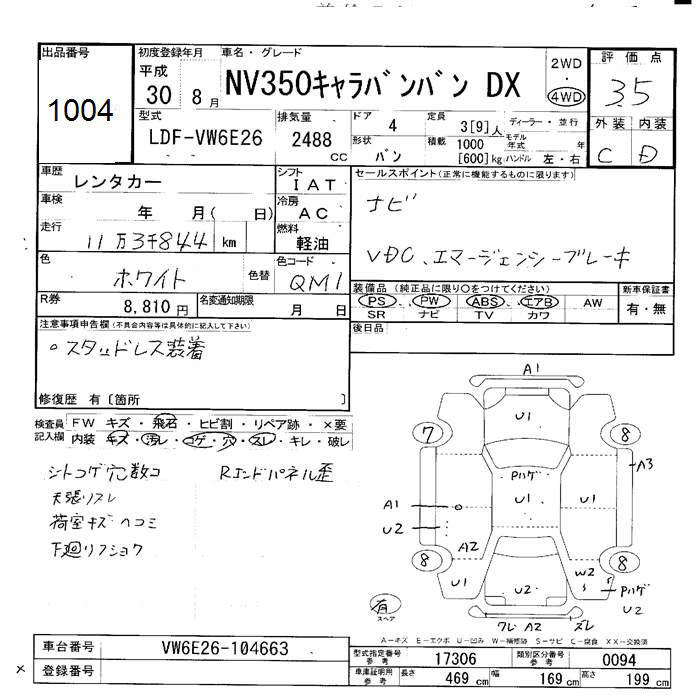 出品番号 初度登録年月 車名・グレード 2WD 評価点
1004 平成 30 8月 NV350キャラバンバン DX ・ 4WD 3.5
型式 排気量 ドア 4 定員 3[9]人 ディーラー・並行 外装 内装
LDF-VW6E26 2488 CC 形状 バン 積載 1000 [600]kg モデル年式 年 ハンドル 左・右 C D
車歴 レンタカー シフト IAT セールスポイント(正常に機能するものに限ります)
車検 年 月( 日) 冷房 AC ナビ
走行 11万3千844 km 燃料 軽油 VDC、エマージェンシーブレーキ
色 ホワイト 色替 色コード QM1
装備品 (純正品に限り○をつけてください) 新車保証書
R券 8,810円 名変通知期限 月 日 PS PW ABS エアB AW 有・無
SR ナビ TV カワ
注意事項申告欄(不具合内容等は具体的に記入して下さい) 後日品
○スタッドレス装着
修復歴 有〔箇所 〕
検査員記入欄 FW キズ・飛石・ヒビ割・リペア跡・×要
内装 キズ・汚レ・コゲ・穴・スレ・キレ・破レ
シートコゲ穴数コ Rエンドパネル歪
天張リスレ
荷室キズヘコミ
下廻リフショク
A1
U1
7 8
Pハゲ A3
A1 U1 U1
U2
A2
8 8
U1 U2 W2 Pハゲ
U2
有 スペア
ワレ A2 ズレ
A-キズ E-エクボ U-凹み W-補修跡 S-サビ C-腐食 XX-交換済
車台番号 VW6E26-104663 型式指定番号 参考 17306 類別区分番号 参考 0094
登録番号 車庫証明用 参考 長さ 469 cm 幅 169 cm 高さ 199 cm